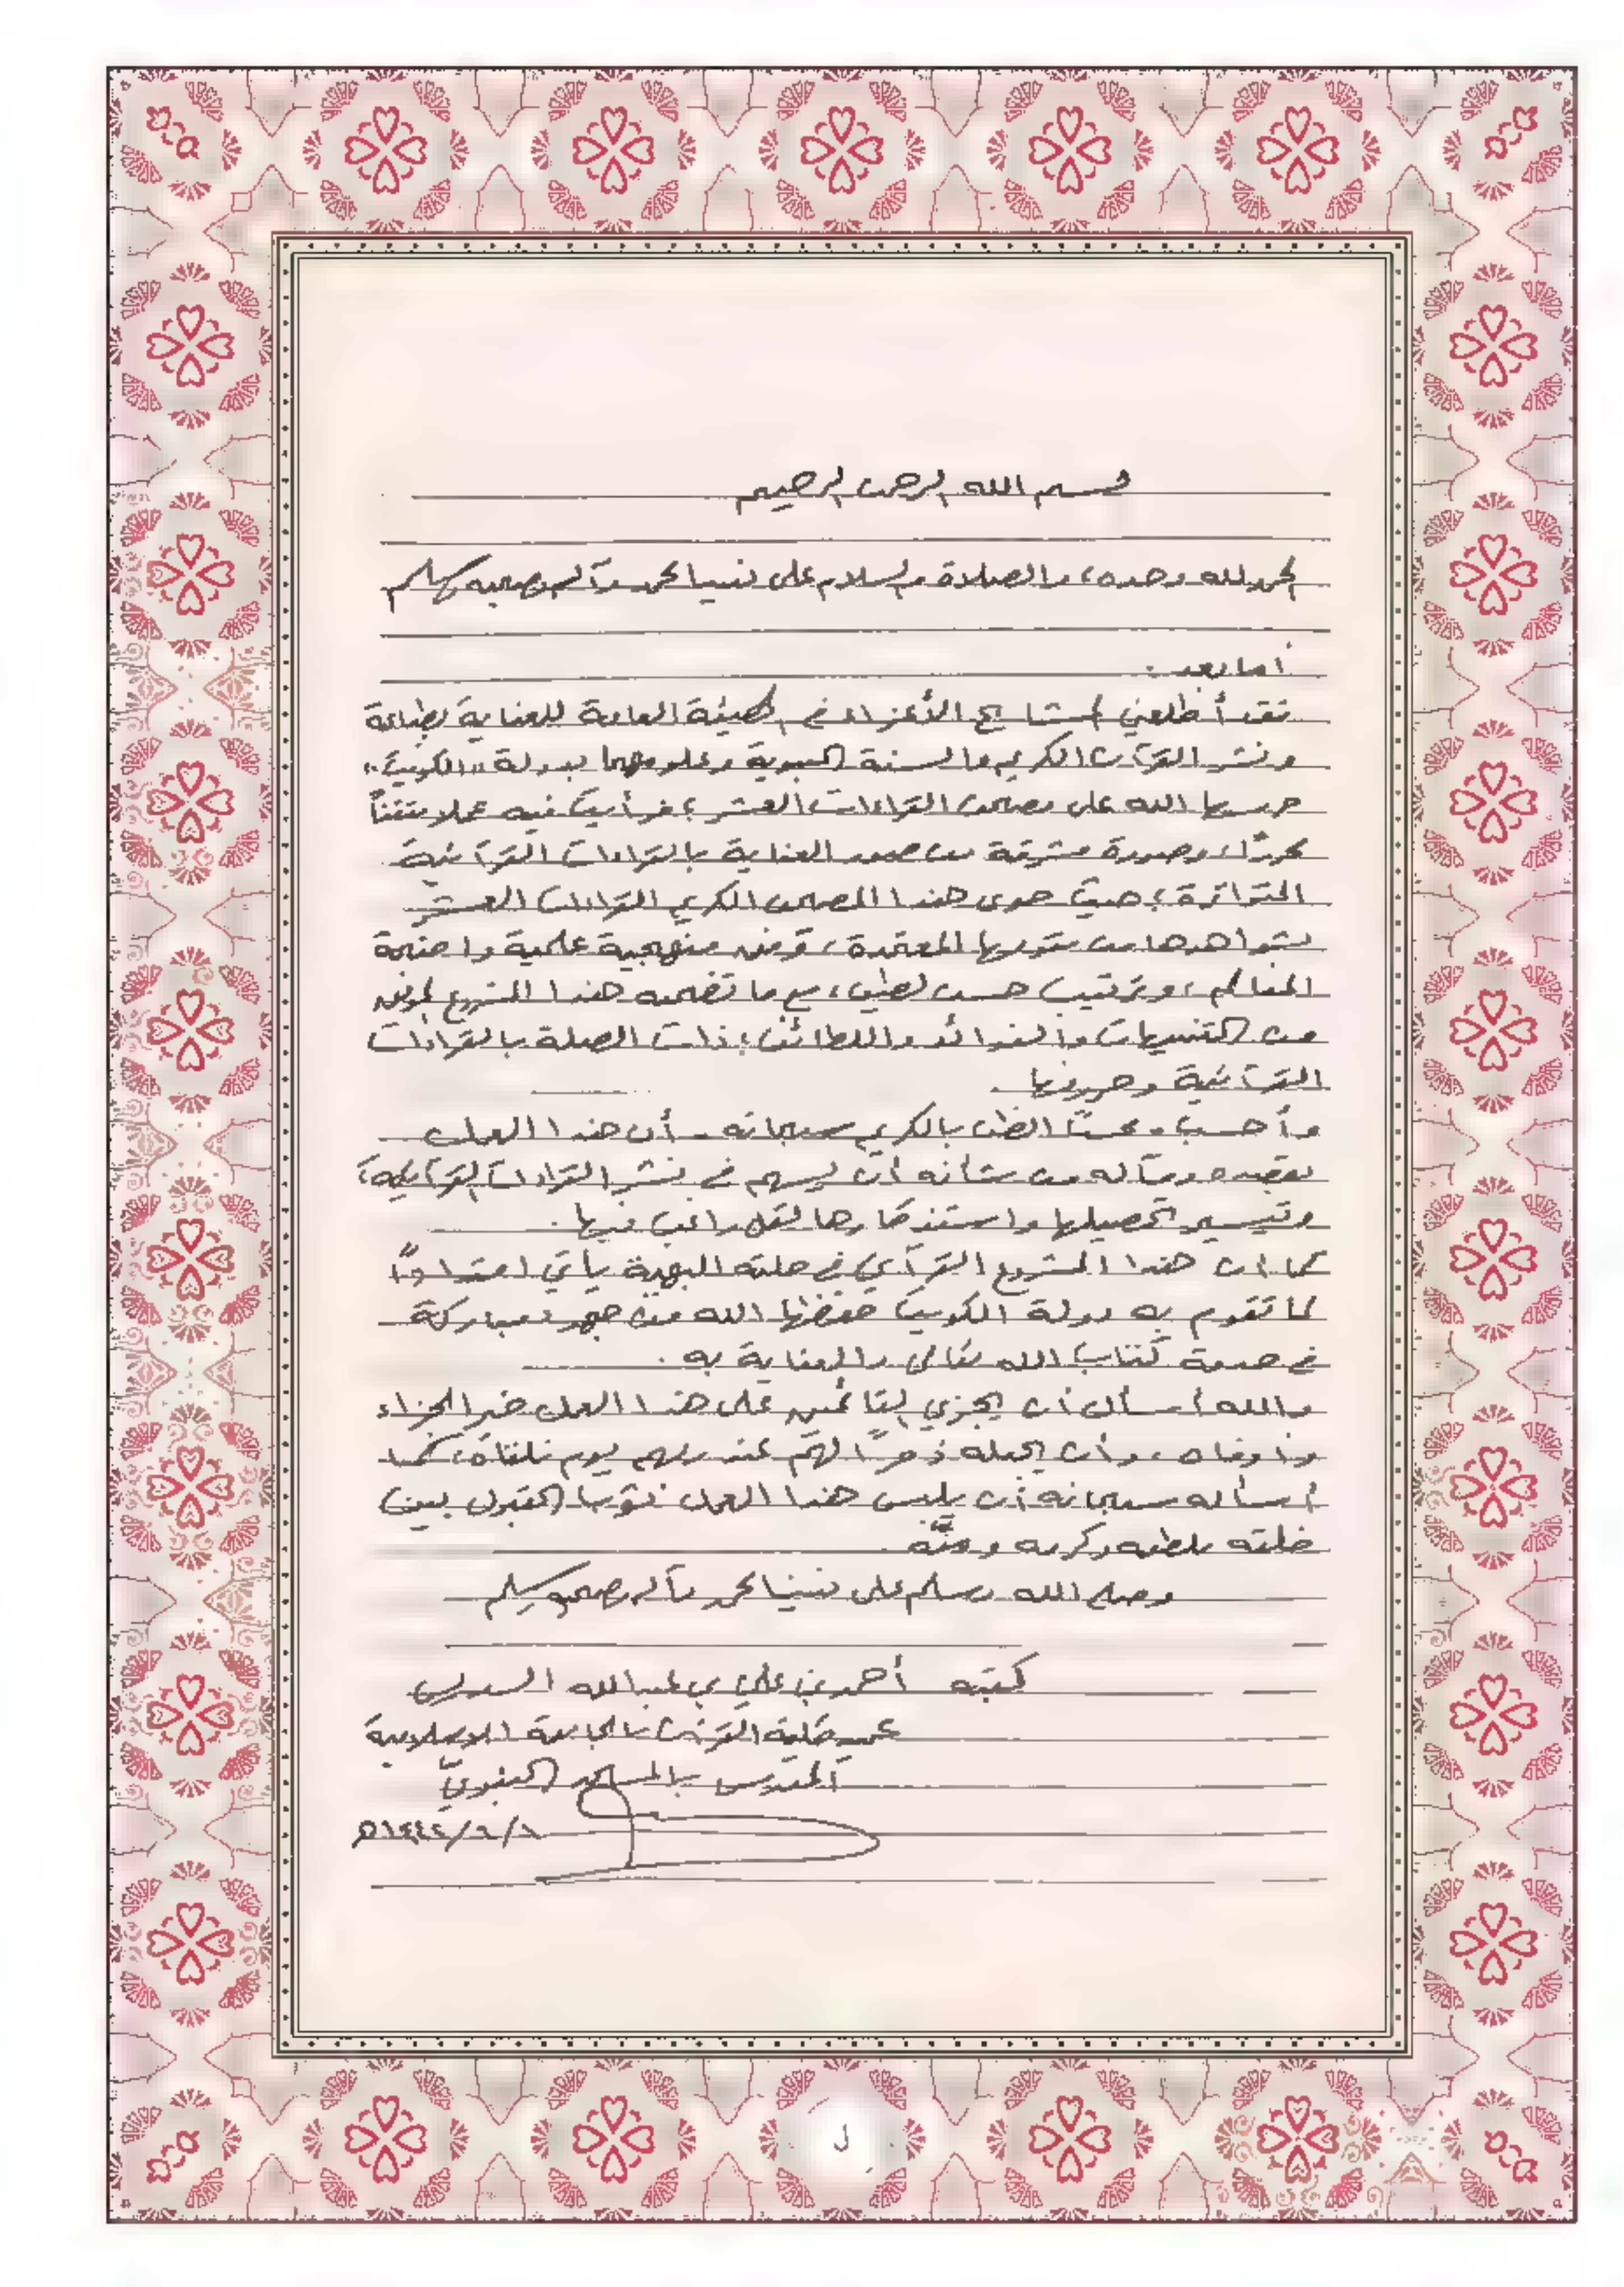 بسم الله الرحمن الرحيم
الحمد لله وحده، والصلاة والسلام على نبينا محمد وآله وصحبه وسلم
أما بعد:
فقد أطلعني المشايخ الأعزاء في الهيئة العامة للعناية بطباعة
ونشر القرآن الكريم والسنة النبوية وعلومهما بدولة "الكويت"
حرسها الله على مصحف القراءات العشر؛ فرأيت فيه عملا متقناً
محرراً، وصورة مشرقة من صور العناية بالقراءات القرآنية
المتواترة؛ حيث حوى هذا المصحف الكريم القراءات العشر
بشواهدها من متونها المعتمدة، وفق منهجية علمية واضحة
المعالم، وترتيب حسن لطيف، مع ما تضمنه هذا المشروع الموفق
من التنبيهات والفوائد واللطائف؛ ذات الصلة بالقراءات
القرآنية وحروفها.
وأحسب - محسناً الظن بالكريم سبحانه - أن هذا العمل
بقصده ومآله من شأنه أن يسهم في نشر القراءات القرآنية،
وتيسير تحصيلها واستذكارها لكل راغب فيها.
كما أن هذا المشروع القرآني في حلته البهية يأتي امتداداً
لما تقوم به دولة الكويت حفظها الله من جهود مباركة
في خدمة كتاب الله تعالى والعناية به.
والله أسأل أن يجزي القائمين على هذا العمل خير الجزاء
وأوفاه، وأن يجعله ذخراً لهم عند ربهم يوم نلقاه، كما
أسأله سبحانه أن يلبس هذا العمل ثوب القبول بين
خلقه بلطفه وكرمه ومنّه.
وصلى الله وسلم على نبينا محمد وآله وصحبه وسلم
كتبه أحمد بن علي بن عبدالله السديس
عميد كلية القرآن بالجامعة الإسلامية
المدرس بالمسجد النبويّ
ل